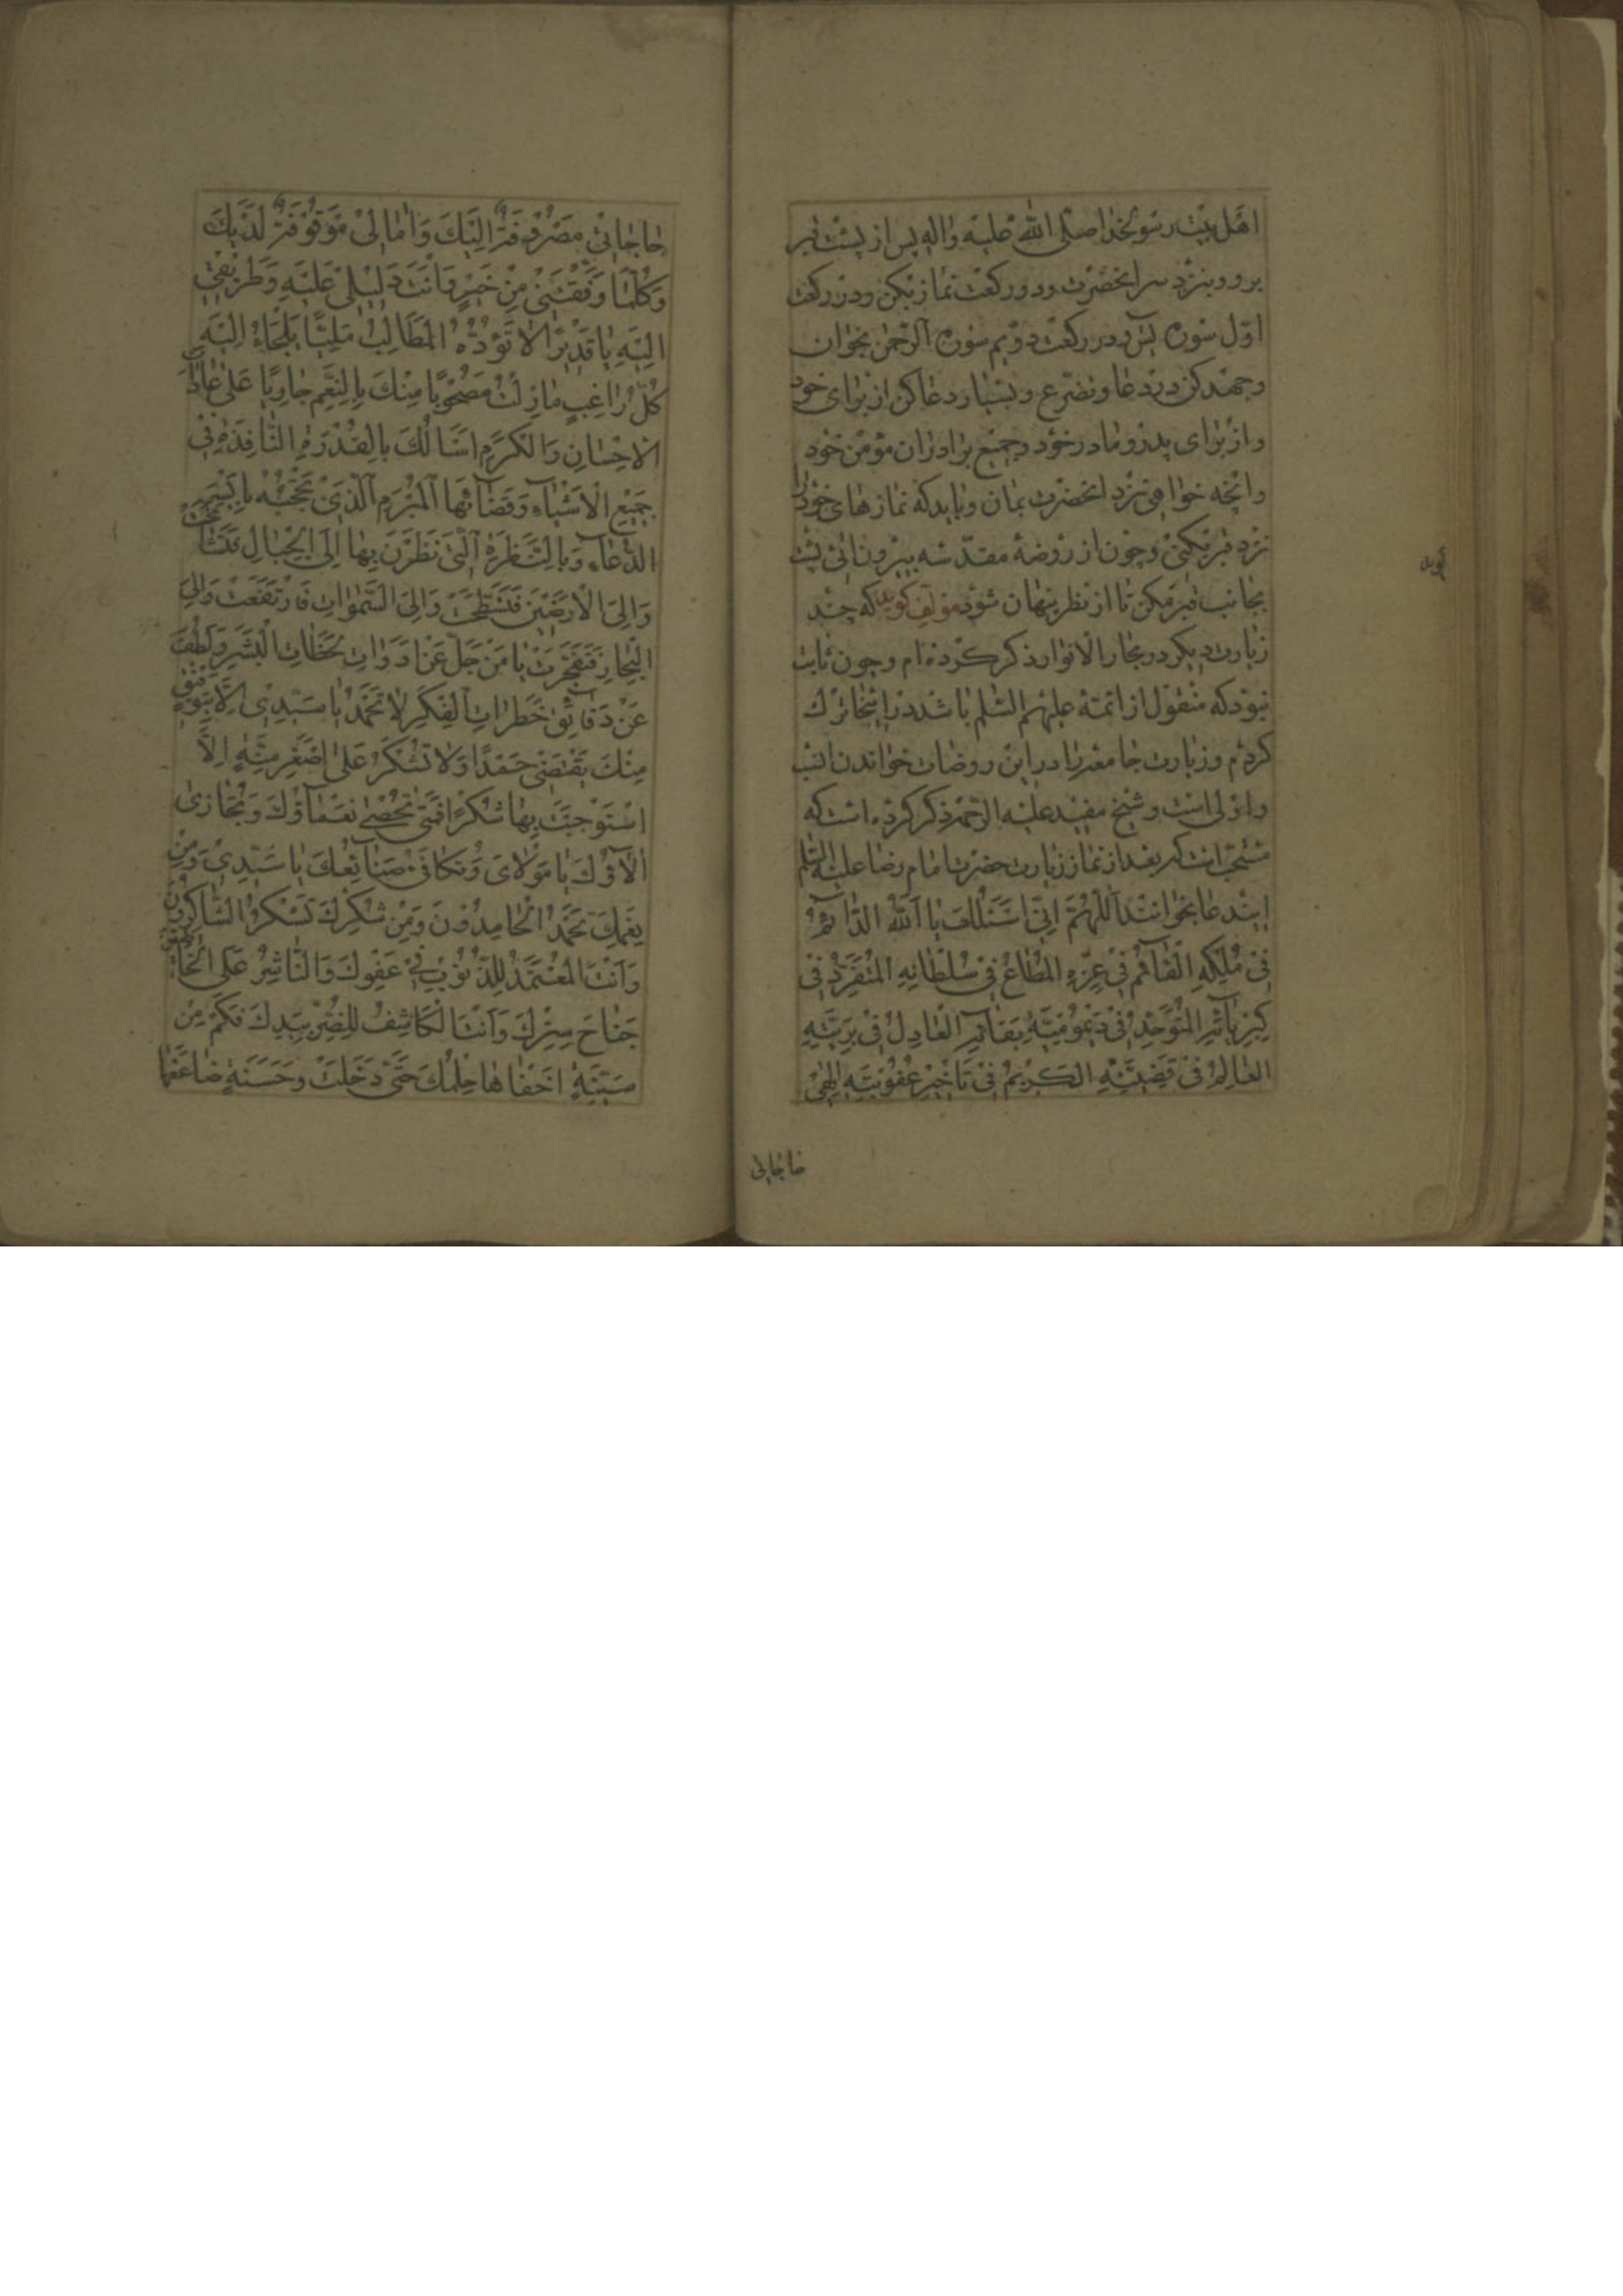 اهل بیت رسولخدا صلی الله علیه واله پس از پشت قبر
برو و بنزد سر انحضرت و دو رکعت نماز بکن و در رکعت
اول سوره یس و در رکعت دویم سوره الرحمن بخوان
و جهد کن در دعا و تضرع و بسیار دعا کن از برای خود
و از برای پدر و مادر خود و جمیع برادران مؤمن خود
و انچه خواهی نزد انحضرت بمان و باید که نمازهای خود را
نزد قبر بکنی و چون از روضهٔ مقدسه بیرون ائی پشت
بجانب قبر مکن تا از نظر پنهان شود مؤلف کوید که چند
زیارت دیکر در بحار الانوار ذکر کرده ام و چون ثابت
نبود که منقول از ائمه علیهم السلم باشد در اینجا ترک
کردم و زیارت جامعه را در این روضات خواندن انسب
و اولی است و شیخ مفید علیه الرحمه ذکر کرده است که
مستحب است که بعد از نماز زیارت حضرت امام رضا علیه السلم
این دعا بخوانند اَللّهُمَّ اِنّی اَسْئَلُكَ یا اَللهُ الدّائِمُ
فی مُلْكِهِ الْقآئِمُ فی عِزِّهِ الْمُطاعُ فی سُلْطانِهِ الْمُتَفَرِّدُ فی
كِبْرِیآئِهِ الْمُتَوَحِّدُ فی دَیْمُومِیَّةِ بَقآئِهِ الْعادِلُ فی بَرِیَّتِهِ
الْعالِمُ فی قَضِیَّتِهِ الْكَریمُ فی تَأْخیرِ عُقُوبَتِهِ اِلهی
حاجاتی
حاجاتی مَصْرُوفَةٌ اِلَیْكَ وَامالی مَوْقُوفَةٌ لَدَیْكَ
وَكُلَّما وَفَّقْتَنی مِنْ خَیْرٍ فَاَنْتَ دَلیلی عَلَیْهِ وَطَریقی
اِلَیْهِ یا قَدیرًا لا تَؤُدُهُ الْمَطالِبُ یا مَلِیًّا یَلْجَاُ اِلَیْهِ
كُلُّ راغِبٍ مازِلْتُ مَصْحُوبًا مِنْكَ بِالنِّعَمِ جارِیًا عَلی عاداتِ
الاِحْسانِ وَالْكَرَمِ اَسْاَلُكَ بِالْقُدْرَةِ النّافِذَةِ فی
جَمیعِ الْاَشْیآءِ وَقَضآئِهَا الْمُبْرَمِ الَّذی تَحْجُبُهُ بِاَیْسَرِ
الدُّعآءِ وَبِالنَّظْرَةِ الَّتی نَظَرْتَ بِها اِلَی الْجِبالِ فَتَشامَخَتْ
وَاِلَی الْاَرَضینَ فَتَسَطَّحَتْ وَاِلَی السَّمواتِ فَارْتَفَعَتْ وَاِلَی
الْبِحارِ فَتَفَجَّرَتْ یا مَنْ جَلَّ عَنْ اَدَواتِ لَحَظاتِ الْبَشَرِ وَلَطُفَ
عَنْ دَقآئِقِ خَطَراتِ الْفِكَرِ لا تُحْمَدُ یا سَیِّدی اِلّا بِتَوْفیقٍ
مِنْكَ یَقْتَضی حَمْدًا وَلا تُشْكَرُ عَلی اَصْغَرِ مِنَّةٍ اِلاَّ
اسْتَوْجَبْتَ بِها شُكْرًا فَمَتی تُحْصی نَعْمآؤُكَ وَتُجازی
الآؤُكَ یا مَوْلایَ وَتُكافی صَنآئِعُكَ یا سَیِّدی وَمِنْ
نِعَمِكَ یَحْمَدُ الْحامِدُونَ وَمِنْ شُكْرِكَ یَشْكُرُ الشّاكِرُونَ
وَاَنْتَ الْمُعْتَمَدُ لِلذُّنُوبِ فی عَفْوِكَ وَالنّاشِرُ عَلَی الْخاطِئینَ
جَناحَ سِتْرِكَ وَاَنْتَ الْكاشِفُ لِلضُّرِّ بِیَدِكَ فَكَمْ مِنْ
سَیِّئَةٍ اَخْفاها حِلْمُكَ حَتّی دَخِلَتْ وَحَسَنَةٍ ضاعَفَها